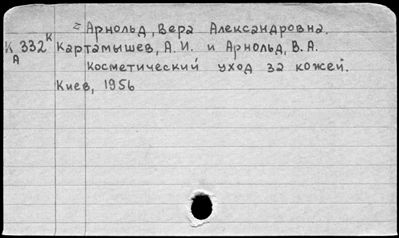 = Арнольд, Вера Александровна.
К 332к Картамышев, А.И. и Арнольд, В.А.
А
Косметический уход за кожей.
Киев, 1956